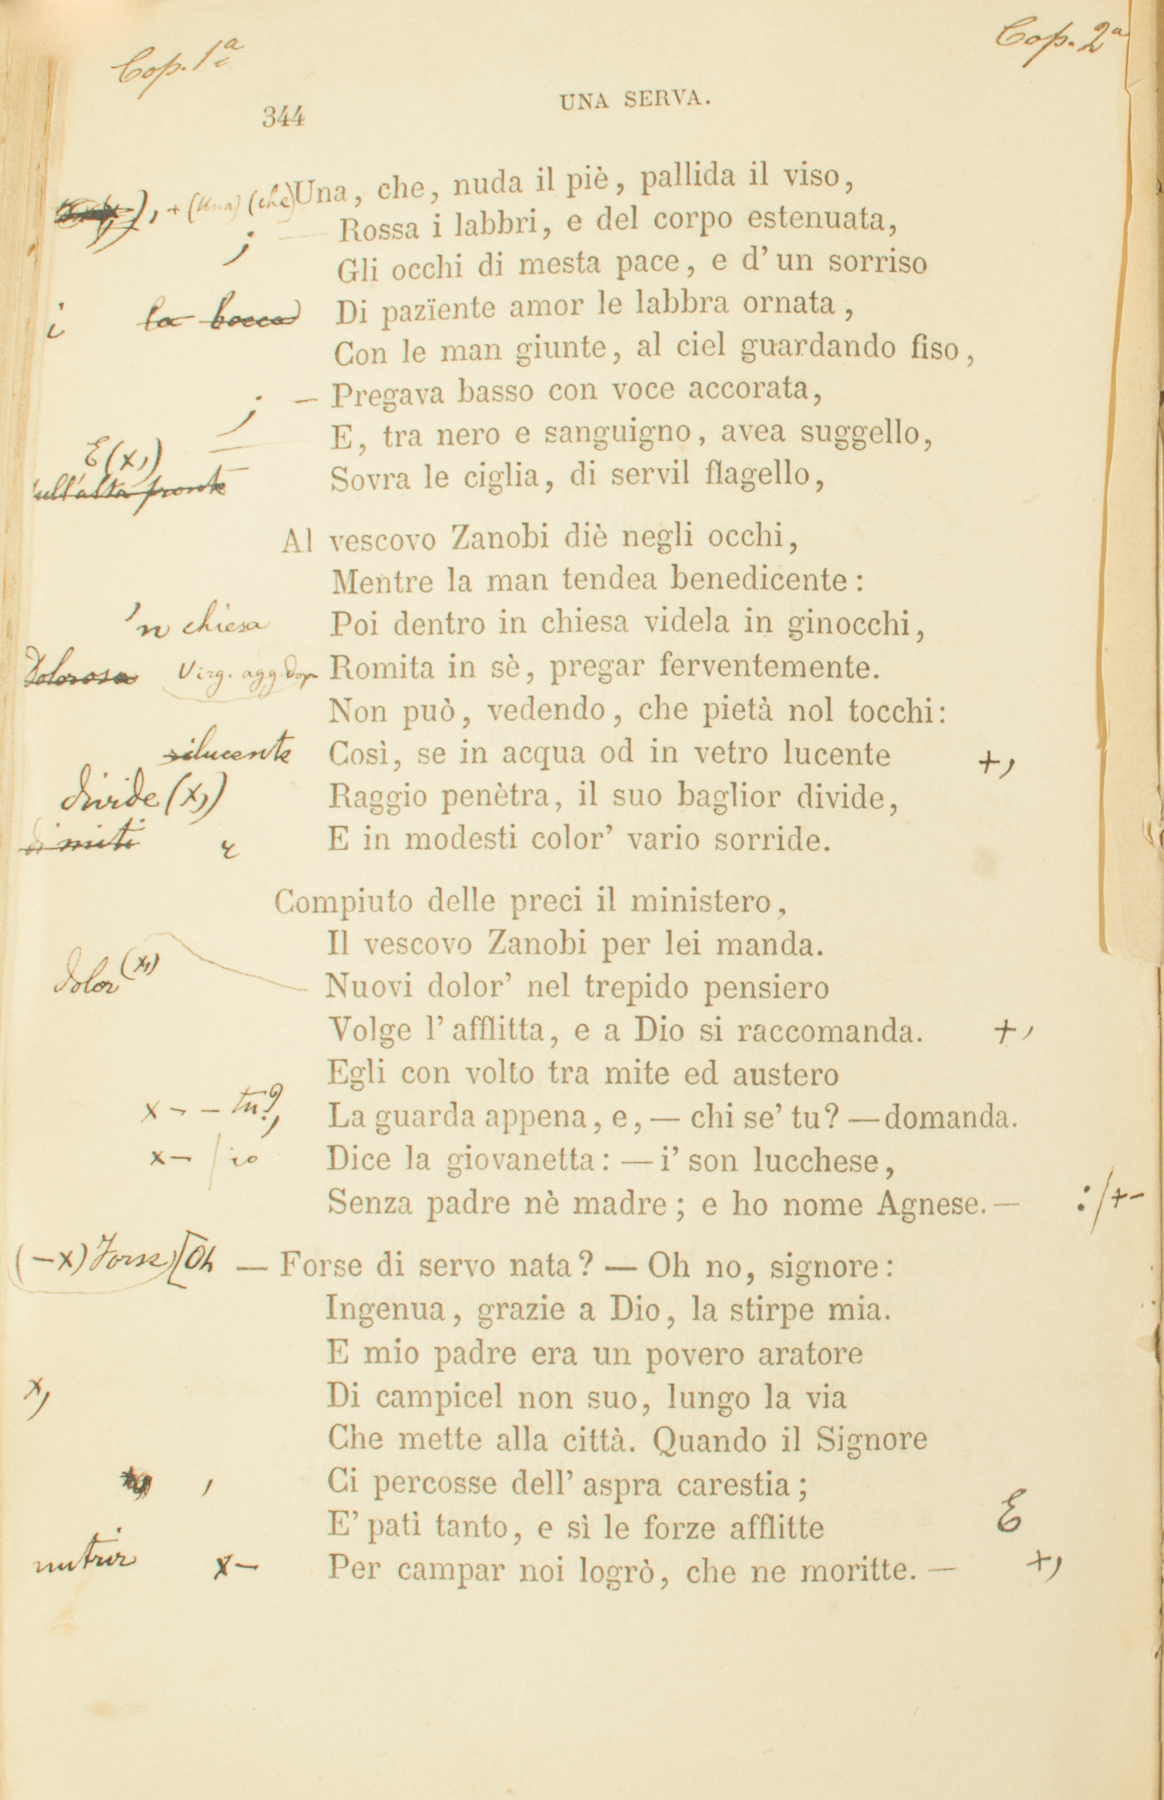 Cop. 1ª
Cop. 2ª
344
UNA SERVA.
), + (Una) (che) Una, che, nuda il piè, pallida il viso,
; Rossa i labbri, e del corpo estenuata,
Gli occhi di mesta pace, e d' un sorriso
i la bocca Di pazïente amor le labbra ornata,
Con le man giunte, al ciel guardando fiso,
; — Pregava basso con voce accorata,
E (x,) E, tra nero e sanguigno, avea suggello,
sull'alta fronte Sovra le ciglia, di servil flagello,
Al vescovo Zanobi diè negli occhi,
Mentre la man tendea benedicente:
'n chiesa Poi dentro in chiesa videla in ginocchi,
Dolorosa Virg. agg. dop. Romita in sè, pregar ferventemente.
Non può, vedendo, che pietà nol tocchi:
rilucente Così, se in acqua od in vetro lucente +,
divide (x,) Raggio penètra, il suo baglior divide,
di miti E in modesti color' vario sorride.
Compiuto delle preci il ministero,
Il vescovo Zanobi per lei manda.
dolor (x,) Nuovi dolor' nel trepido pensiero
Volge l' afflitta, e a Dio si raccomanda. +,
Egli con volto tra mite ed austero
x - - tu?, La guarda appena, e, — chi se' tu? — domanda.
x - / io Dice la giovanetta: — i' son lucchese,
Senza padre nè madre; e ho nome Agnese. — : / + -
(-x) Forse [Oh — Forse di servo nata? — Oh no, signore:
Ingenua, grazie a Dio, la stirpe mia.
E mio padre era un povero aratore
x, Di campicel non suo, lungo la via
Che mette alla città. Quando il Signore
, Ci percosse dell' aspra carestia;
E' patì tanto, e sì le forze afflitte E
nutrir x - Per campar noi logrò, che ne moritte. — +,